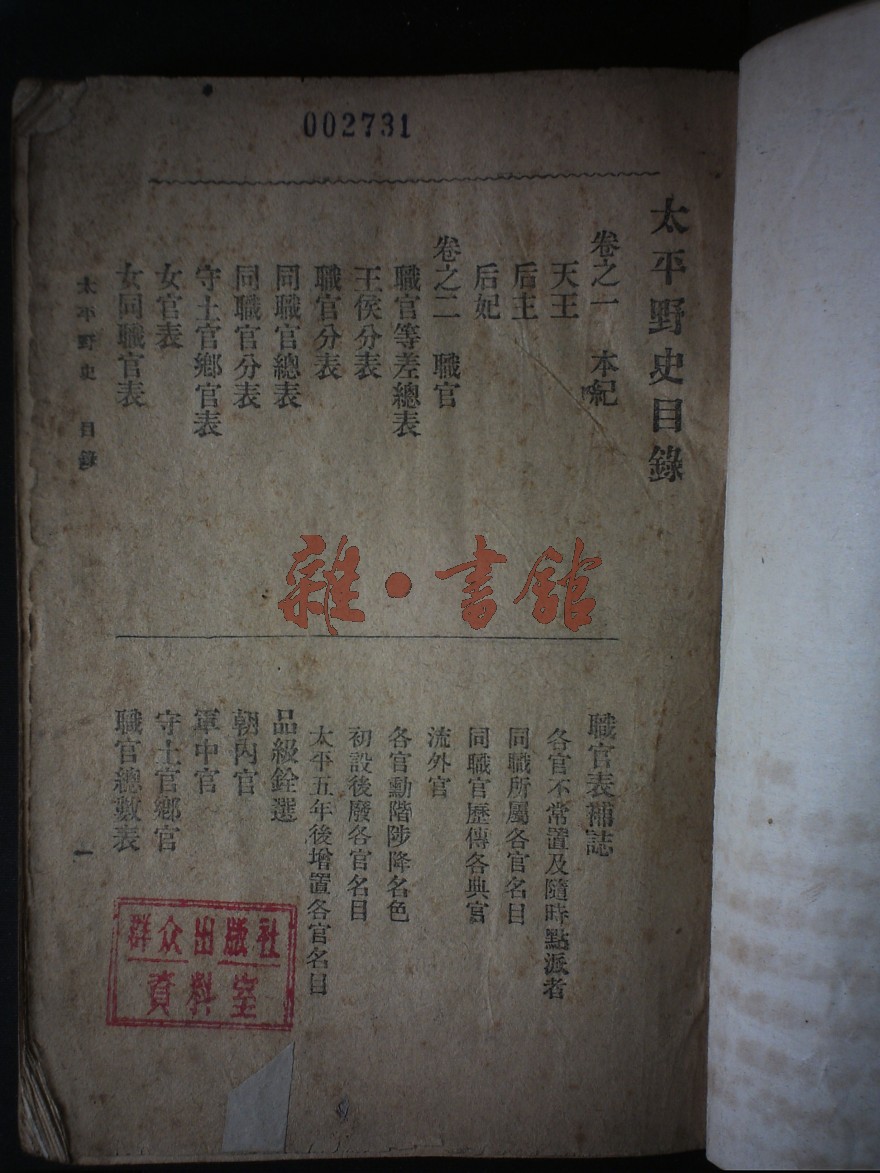 002731
太平野史目錄
卷之一　本紀
天王
后主
后妃
卷之二　職官
職官等差總表
王侯分表
職官分表
同職官總表
同職官分表
守土官鄉官表
女官表
女同職官表
職官表補誌
各官不常置及隨時點派者
同職所屬各官名目
同職官歷傳各典官
流外官
各官勳階陟降名色
初設後廢各官名目
太平五年後增置各官名目
品級銓選
朝內官
軍中官
守土官鄉官
職官總數表
太平野史　目錄
一
雜·書館
群众出版社
資料室